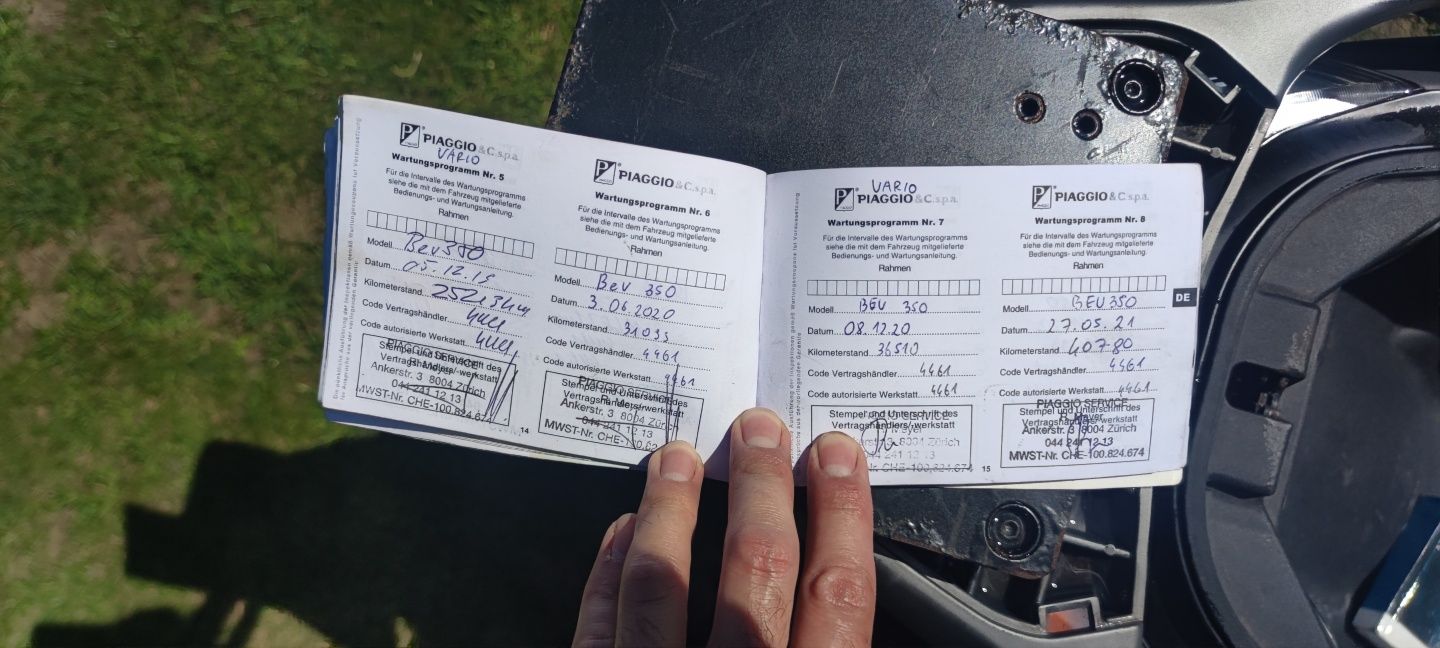 PIAGGIO & C. s.p.a.
VARIO
Wartungsprogramm Nr. 5
Für die Intervalle des Wartungsprogramms
siehe die mit dem Fahrzeug mitgelieferte
Bedienungs- und Wartungsanleitung.
Rahmen
Modell Bev 350
Datum 05.12.19
Kilometerstand
Code Vertragshändler
Code autorisierte Werkstatt
PIAGGIO SERVICE
Stempel und Unterschrift des
R. Meyer
Vertragshändlers/-werkstatt
Ankerstr. 3 8004 Zürich
044 241 12 13
MWST-Nr. CHE-100.824.674
14
PIAGGIO & C. s.p.a.
Wartungsprogramm Nr. 6
Für die Intervalle des Wartungsprogramms
siehe die mit dem Fahrzeug mitgelieferte
Bedienungs- und Wartungsanleitung.
Rahmen
Modell Bev 350
Datum 3.06.2020
Kilometerstand 31035
Code Vertragshändler 4461
Code autorisierte Werkstatt 4461
PIAGGIO SERVICE
Stempel und Unterschrift des
Vertragshändlers/-werkstatt
Ankerstr. 3 8004 Zürich
044 241 12 13
MWST-Nr. CHE-100.82
VARIO
PIAGGIO & C. s.p.a.
Wartungsprogramm Nr. 7
Für die Intervalle des Wartungsprogramms
siehe die mit dem Fahrzeug mitgelieferte
Bedienungs- und Wartungsanleitung.
Rahmen
Modell BEV 350
Datum 08.12.20
Kilometerstand 36510
Code Vertragshändler 4461
Code autorisierte Werkstatt 4461
Stempel und Unterschrift des
Vertragshändlers/-werkstatt
8004 Zürich
241 12 13
Nr. CHE-100.824.674
15
PIAGGIO & C. s.p.a.
Wartungsprogramm Nr. 8
Für die Intervalle des Wartungsprogramms
siehe die mit dem Fahrzeug mitgelieferte
Bedienungs- und Wartungsanleitung.
Rahmen
Modell BEV 350
Datum 27.05.21
Kilometerstand 40780
Code Vertragshändler 4461
Code autorisierte Werkstatt 4461
PIAGGIO SERVICE
Stempel und Unterschrift des
R. Meyer
Vertragshändlers/-werkstatt
Ankerstr. 3 8004 Zürich
044 241 12 13
MWST-Nr. CHE-100.824.674
DE